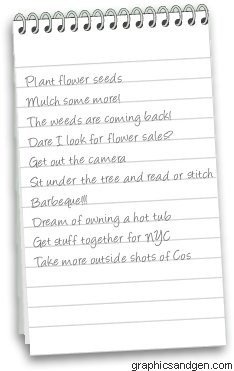 Plant flower seeds
Mulch some more!
The weeds are coming back!
Dare I look for flower sales?
Get out the camera
Sit under the tree and read or stitch
Barbeque!!!
Dream of owning a hot tub
Get stuff together for NYC
Take more outside shots of Cos
graphicsandgen.com